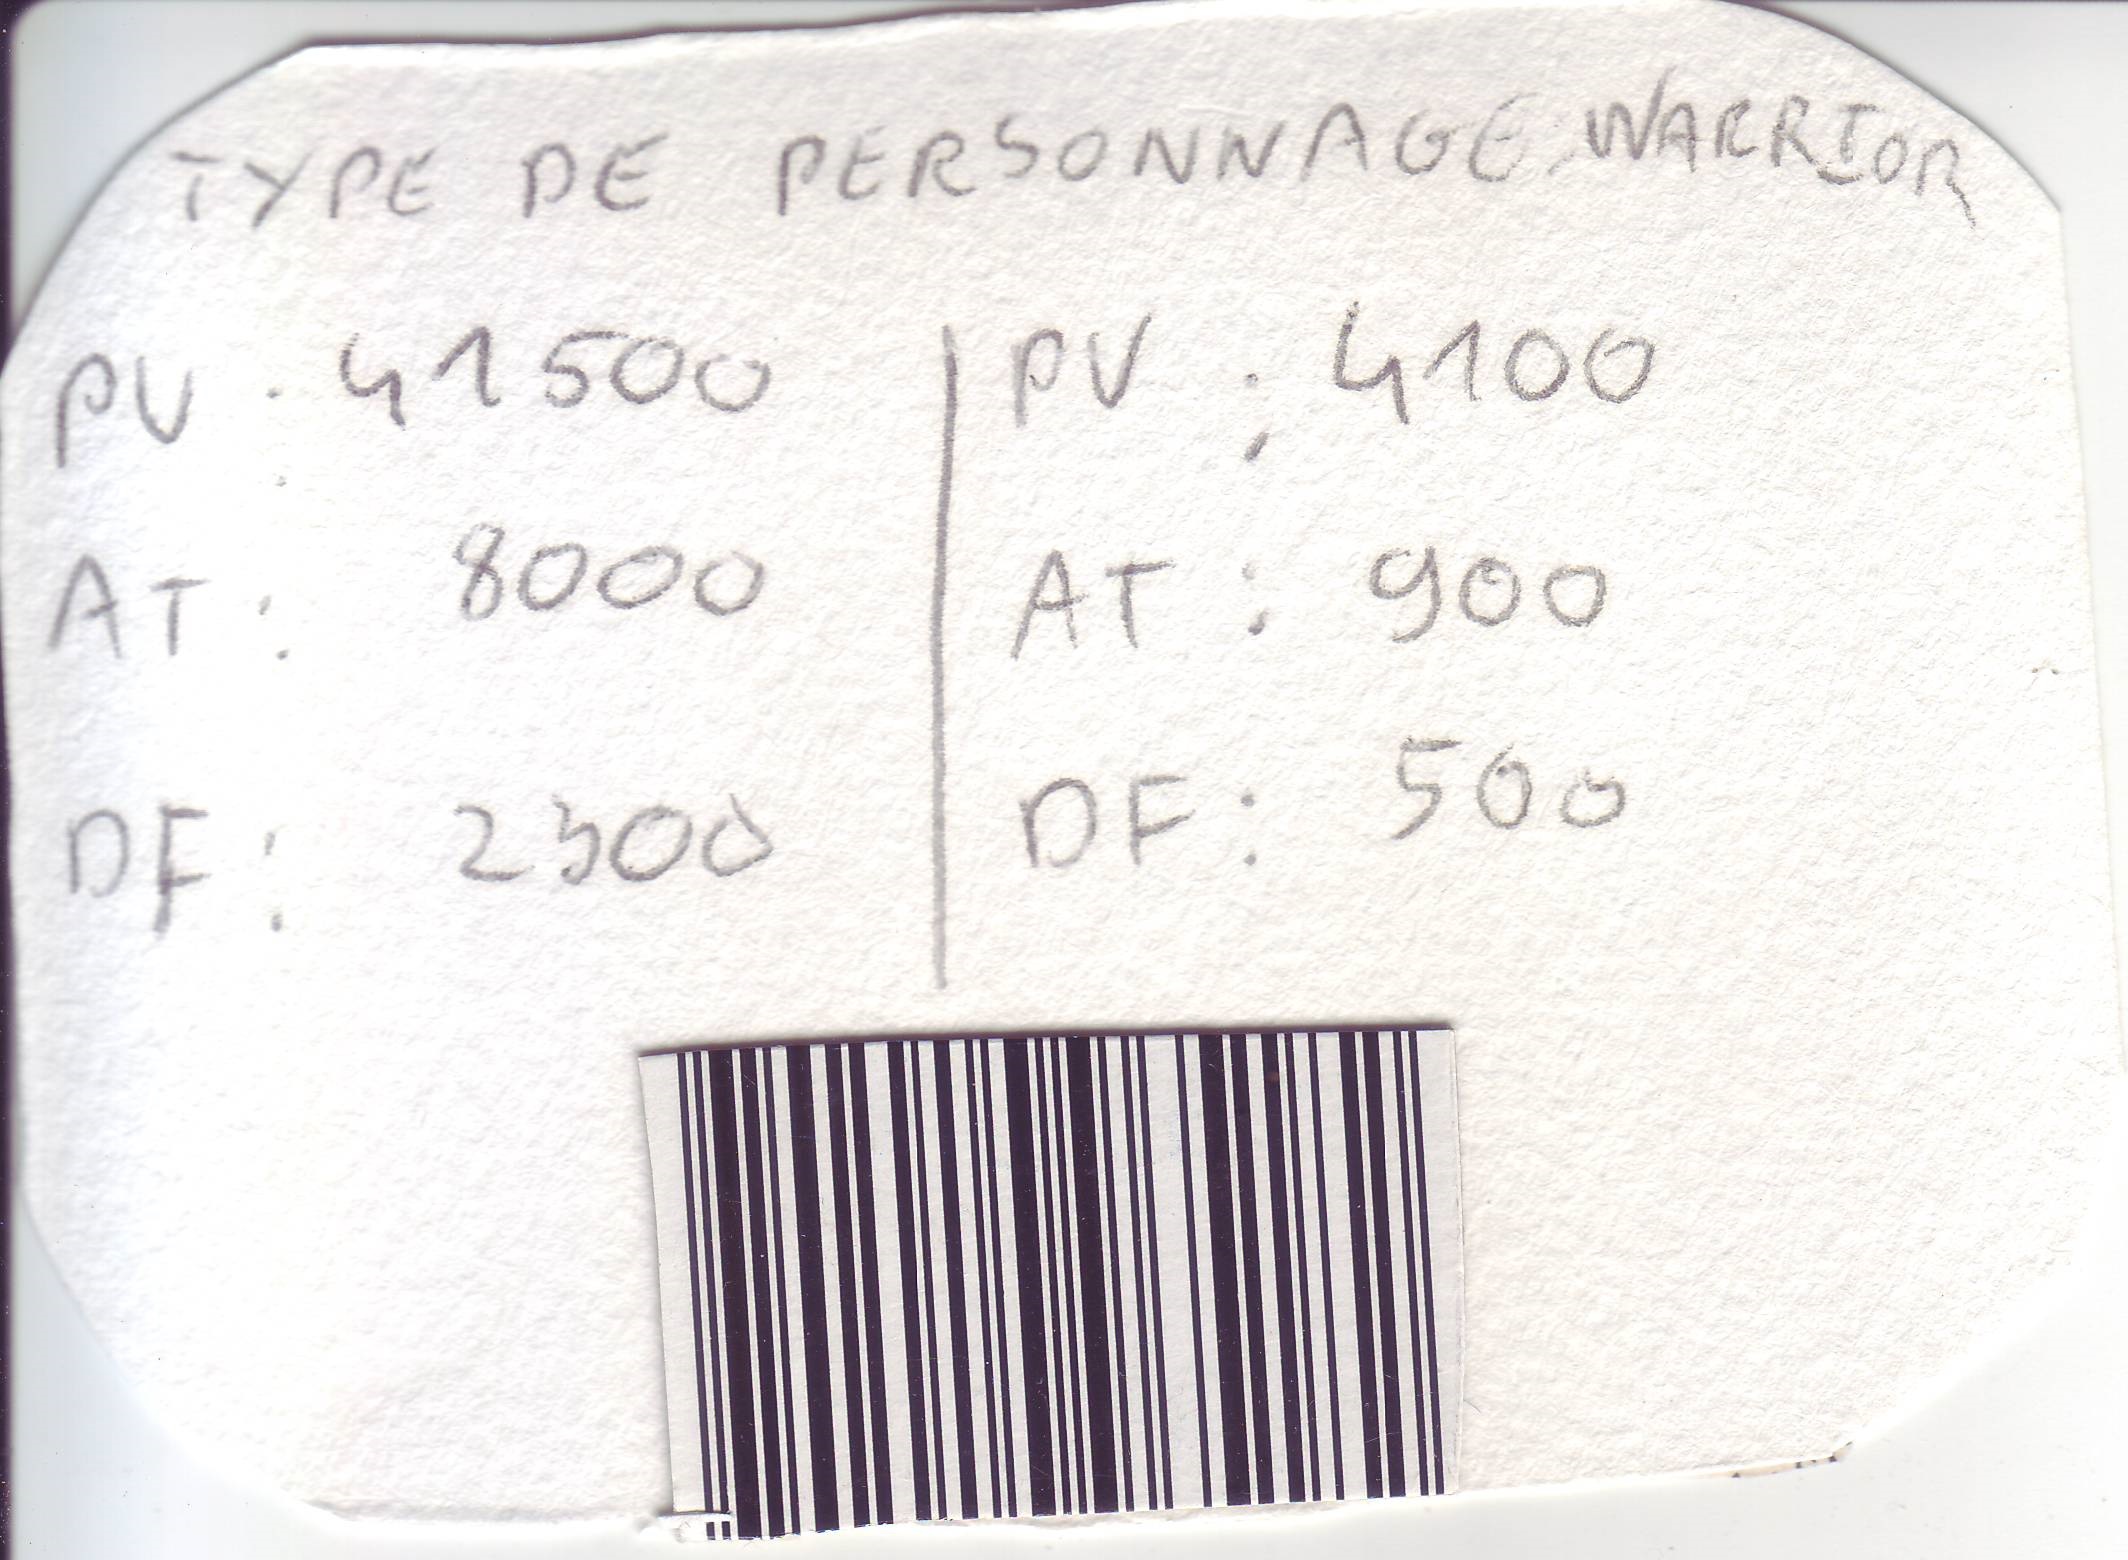 TYPE DE PERSONNAGE: WARRIOR
PV : 41500
AT : 8000
DF : 2300
PV : 4100
AT : 900
DF : 500